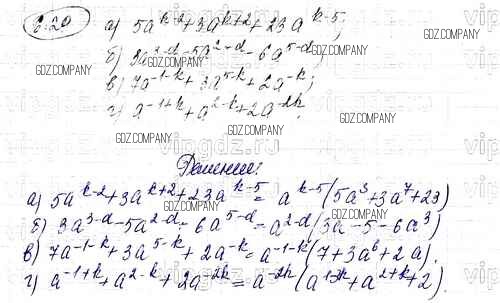 6.20 а) 5a^{k-2}+3a^{k+2}+23a^{k-5};
GDZ.COMPANY
б) 3a^{3-d}-5a^{2-d}-6a^{5-d};
GDZ.COMPANY GDZ.COMPANY GDZ.COMPANY
в) 7a^{-1-k}+3a^{5-k}+2a^{-k};
г) a^{-1+k}+a^{2-k}+2a^{-2k}.
GDZ.COMPANY GDZ.COMPANY GDZ.COMPANY
vipgdz.ru
Решение:
а) 5a^{k-2}+3a^{k+2}+23a^{k-5}=a^{k-5}(5a^3+3a^7+23)
GDZ.COMPANY GDZ.COMPANY
б) 3a^{3-d}-5a^{2-d}-6a^{5-d}=a^{2-d}(3a-5-6a^3)
GDZ.COMPANY
в) 7a^{-1-k}+3a^{5-k}+2a^{-k}=a^{-1-k}(7+3a^6+2a).
г) a^{-1+k}+a^{2-k}+2a^{-2k}=a^{-2k}(a^{-1+3k}+a^{2+k}+2).